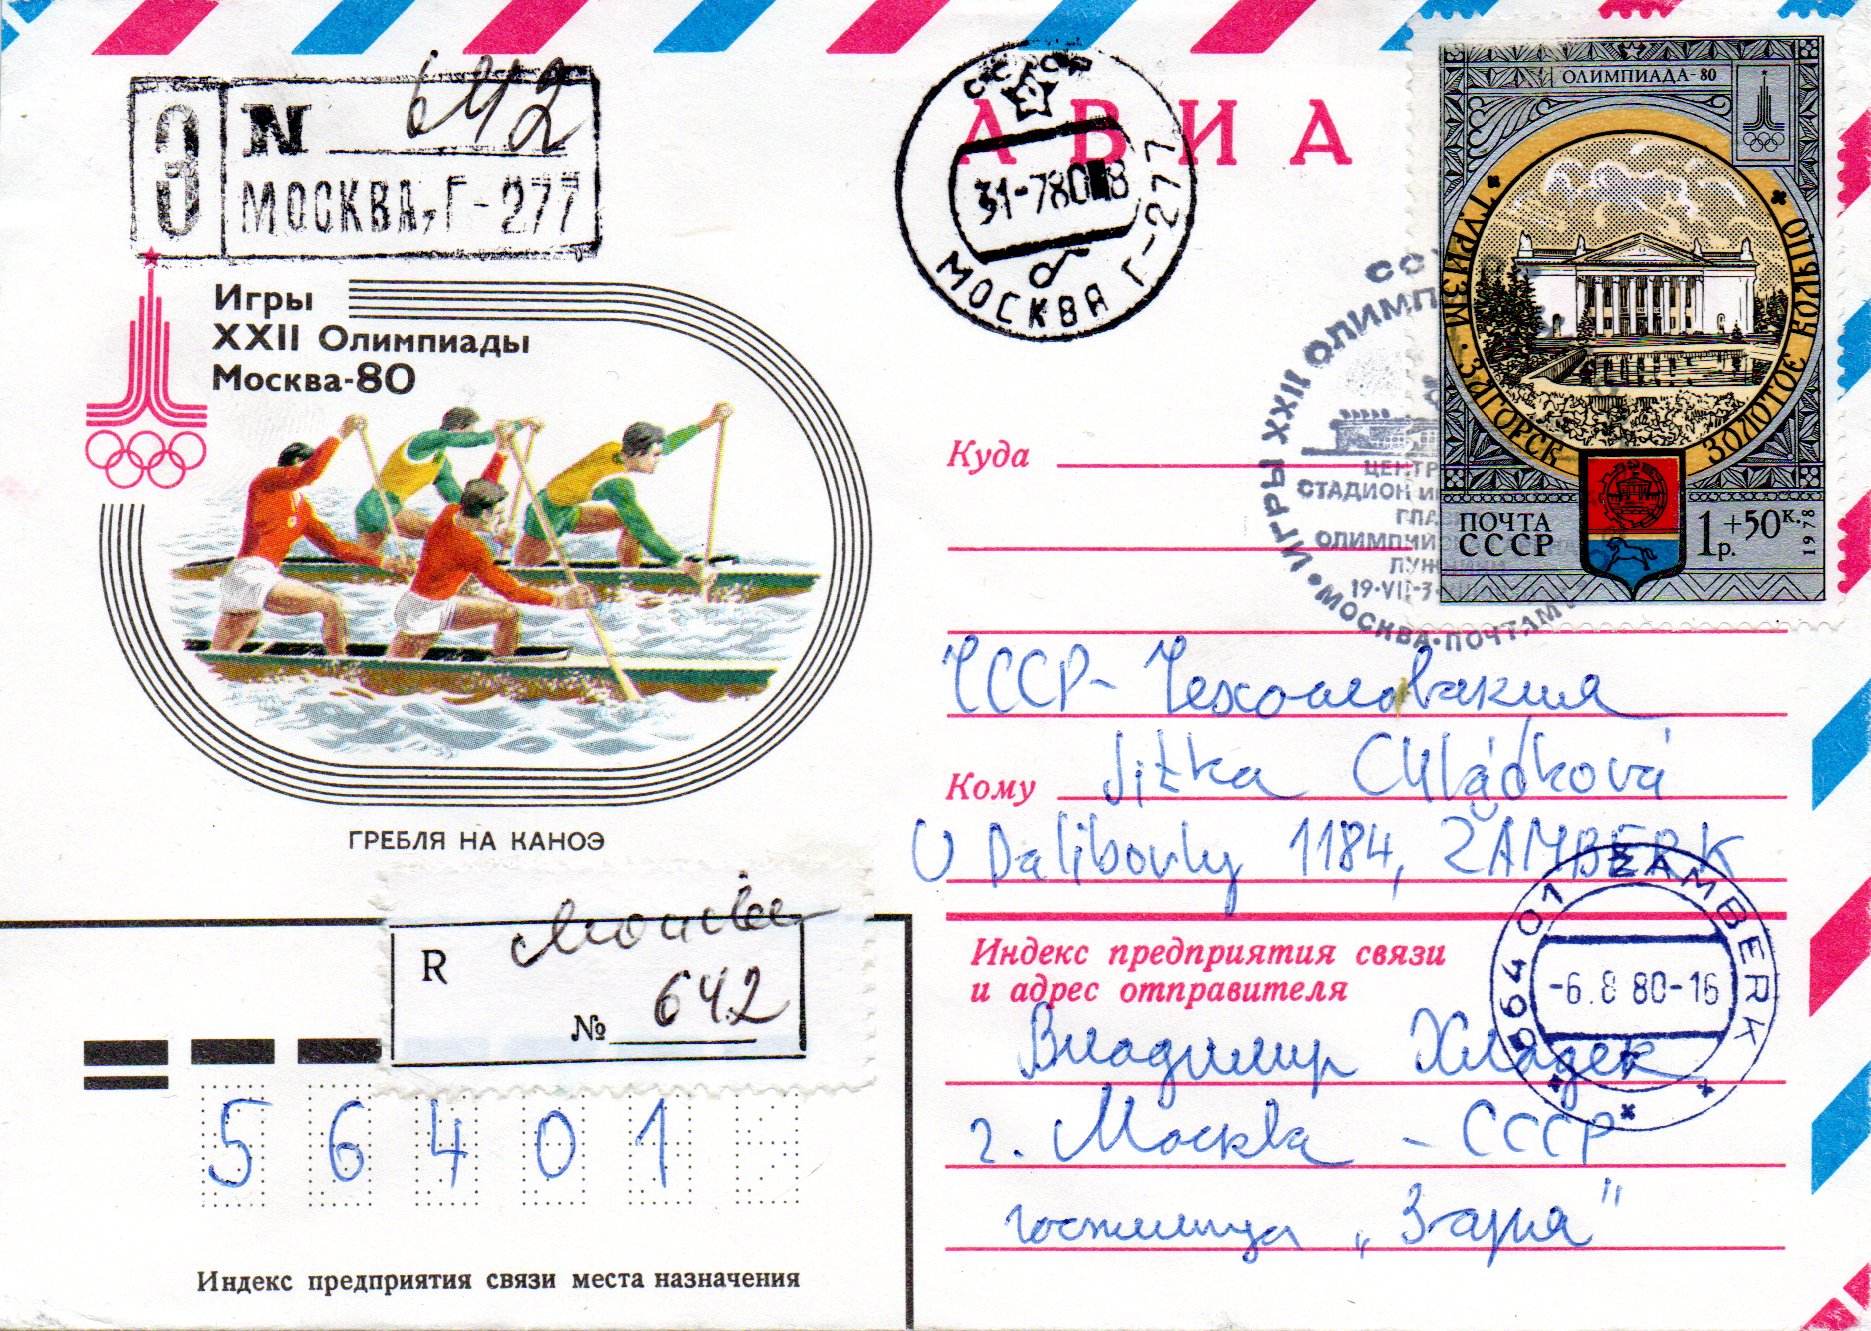 З
N 642
МОСКВА, Г-277
Игры
XXII Олимпиады
Москва-80
ГРЕБЛЯ НА КАНОЭ
АВИА
СССР
31-780
МОСКВА Г-277
ОЛИМПИАДА-80
ТУРИЗМ
ЗОЛОТОЕ КОЛЬЦО
ЗАГОРСК
ПОЧТА
СССР
1р.+50к.
1978
ИГРЫ XXII ОЛИМП
СТАДИОН
ОЛИМПИЙС
19-VII-3
МОСКВА-ПОЧТАМ
Куда
ЧССР- Чехословакия
Кому Jitka Chládková
U Dalibovky 1184, ŽAMBERK
564 01 ŽAMBERK
-6.8 80-16
Индекс предприятия связи
и адрес отправителя
Владимир Хладек
г. Москва - СССР
гостиница „Заря"
R Москва
№ 642
56401
Индекс предприятия связи места назначения